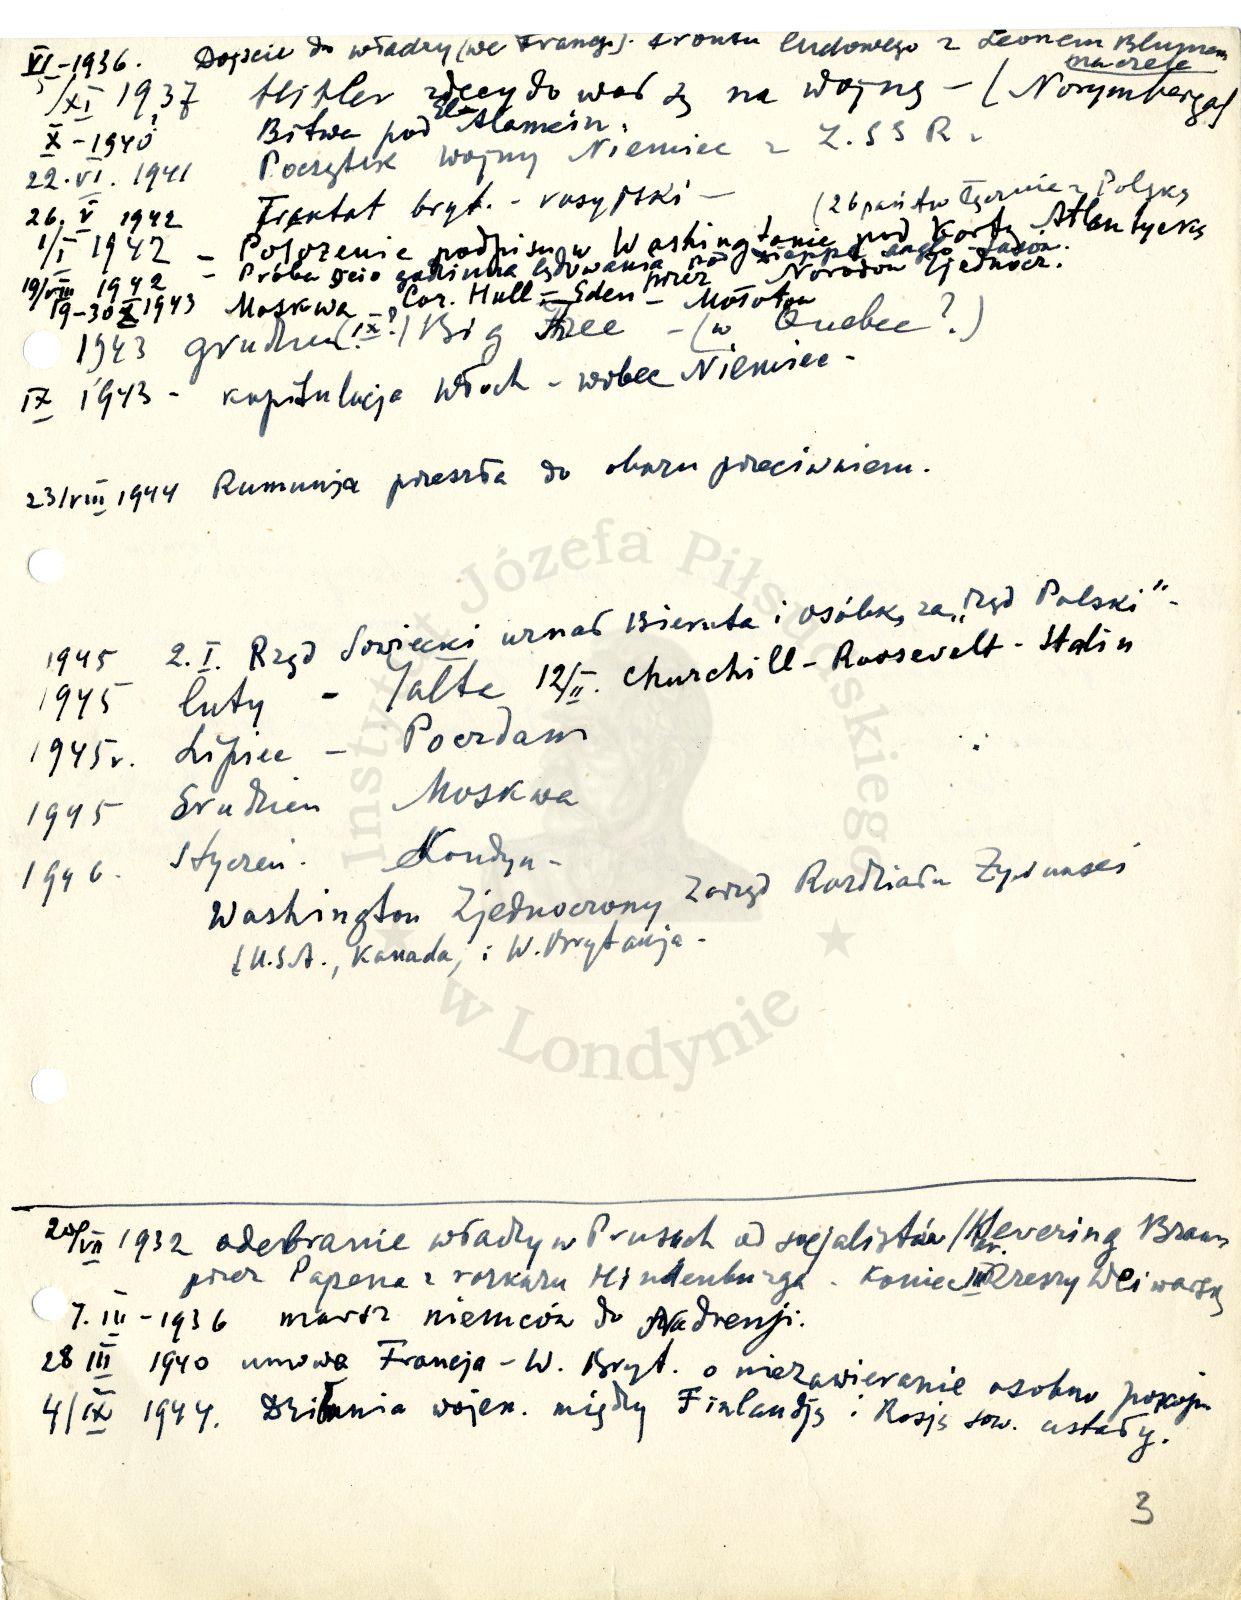 VI-1936. Dojście do władzy (we Francji). Frontu ludowego z Leonem Blumem
na czele
5/XI 1937 Hitler zdecydował się na wojnę - (Norymberga)
X-1940? Bitwa pod El Alamein.
22.VI. 1941 Początek wojny Niemiec z Z.S.S.R.
26. V 1942 Traktat bryt. - rosyjski -
(26 państw łącznie z Polską
1/I 1942 - Położenie podpisów w Washingtonie pod Kartą Atlantycką
19/VIII 1942 - Próba godzinna lądowania pod Dieppe anglo-sasów.
przez Narodów Zjednocz.
19-30 X 1943 Moskwa Cor. Hull - Eden - Mołotow
1943 grudzień (IX?) Big Free - (w Quebec?)
IX 1943 - kapitulacja Włoch - wobec Niemiec -
23/VIII 1944 Rumunja przeszła do obozu przeciwnego.
1945 2.I. Rząd Sowiecki uznał Bieruta i Osóbkę za "Rząd Polski" -
1945 luty - Jałta 12/II. Churchill - Roosevelt - Stalin
1945r. Lipiec - Poczdam
1945 Grudzień Moskwa
1946. Styczeń. Londyn -
Washington Zjednoczony Zarząd Rozdziału Żywności
(U.S.A., Kanada, i W. Brytanja -
20/VII 1932 odebranie władzy w Prusach od socjalistów / Severing Braun
przez Papena z rozkazu Hindenburga. Koniec Rzeszy Weimarskiej
7. III - 1936 marsz niemców do Nadrenji.
28 III 1940 umowa Francja - W. Bryt. o niezawieranie osobno pokoju
4/IX 1944. Działania wojen. między Finlandją i Rosją sow. ustały.
3
Instytut Józefa Piłsudskiego
w Londynie